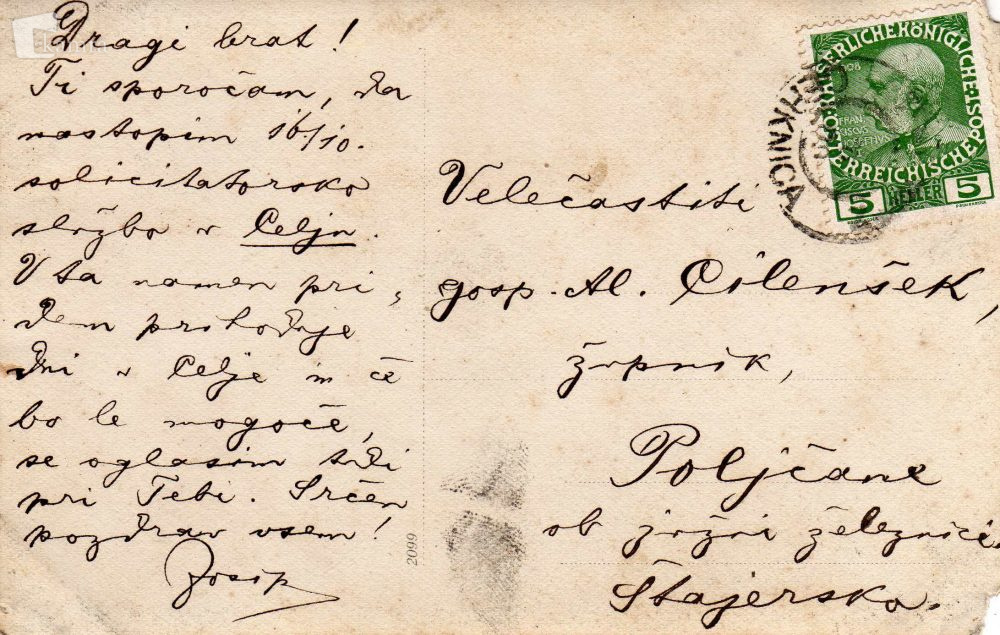 Dragi brat!
Ti sporočam, da
nastopim 16./10.
solicitatorsko
službo v Celju.
V ta namen pri-
dem prihodnje
dni v Celje in če
bo le mogoče,
se oglasim tudi
pri Tebi. Srčen
pozdrav vsem!
Josip
2099
Velečastiti
gosp. Al. Cilenšek,
župnik,
Poljčane
ob južni železnici.
Štajersko.
KAISERLICHE KÖNIGLICHE
ÖSTERREICHISCHE POST
FRAN
CISCUS
JOSEPHUS
5 HELLER 5
CIRKNICA